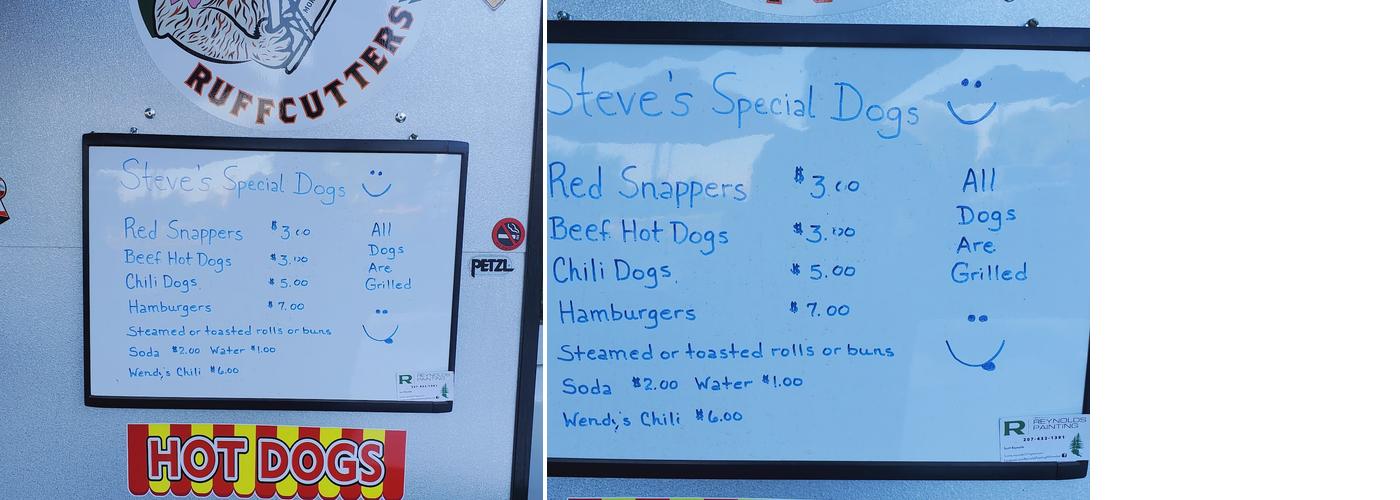 RUFFCUTTERS
Steve's Special Dogs
Red Snappers $3.00 All
Beef Hot Dogs $3.00 Dogs
Chili Dogs. $5.00 Are
Hamburgers $7.00 Grilled
Steamed or toasted rolls or buns
Soda $2.00 Water $1.00
Wendy's Chili $6.00
R REYNOLDS
PAINTING
PETZL
HOT DOGS
Steve's Special Dogs
Red Snappers $3.00 All
Beef Hot Dogs $3.00 Dogs
Chili Dogs. $5.00 Are
Hamburgers $7.00 Grilled
Steamed or toasted rolls or buns
Soda $2.00 Water $1.00
Wendy's Chili $6.00
R REYNOLDS
PAINTING
207-432-1381